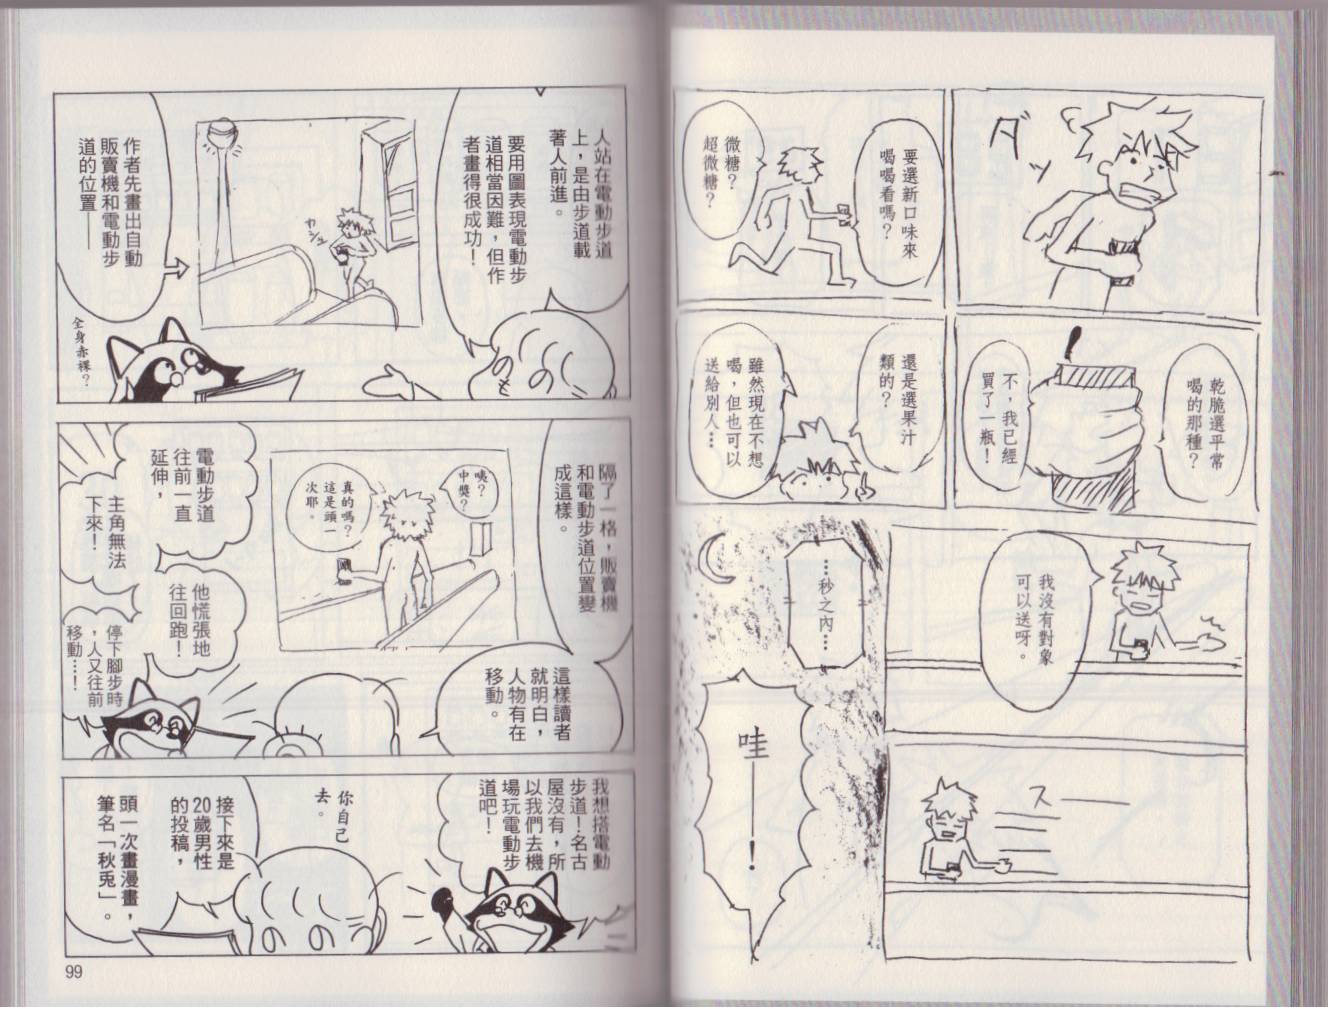 ダッ
乾脆選平常
喝的那種？
不，我已經
買了一瓶！
要選新口味來
喝喝看嗎？
微糖？
超微糖？
還是選果汁
類的？
雖然現在不想
喝，但也可以
送給別人…
我沒有對象
可以送呀。
スー
…秒之內…
哇——！
人站在電動步道
上，是由步道載
著人前進。
要用圖表現電動步
道相當困難，但作
者畫得很成功！
カシュ
作者先畫出自動
販賣機和電動步
道的位置——
全身赤裸？
隔了一格，販賣機
和電動步道位置變
成這樣。
咦？
中獎？
真的嗎？
這是頭一
次耶。
這樣讀者
就明白，
人物有在
移動。
電動步道
往前一直
延伸，
主角無法
下來！
他慌張地
往回跑！
停下腳步時
，人又往前
移動…！
我想搭電動
步道！名古
屋沒有，所
以我們去機
場玩電動步
道吧！
你自己
去。
接下來是
20歲男性
的投稿，
頭一次畫漫畫，
筆名「秋兎」。
99